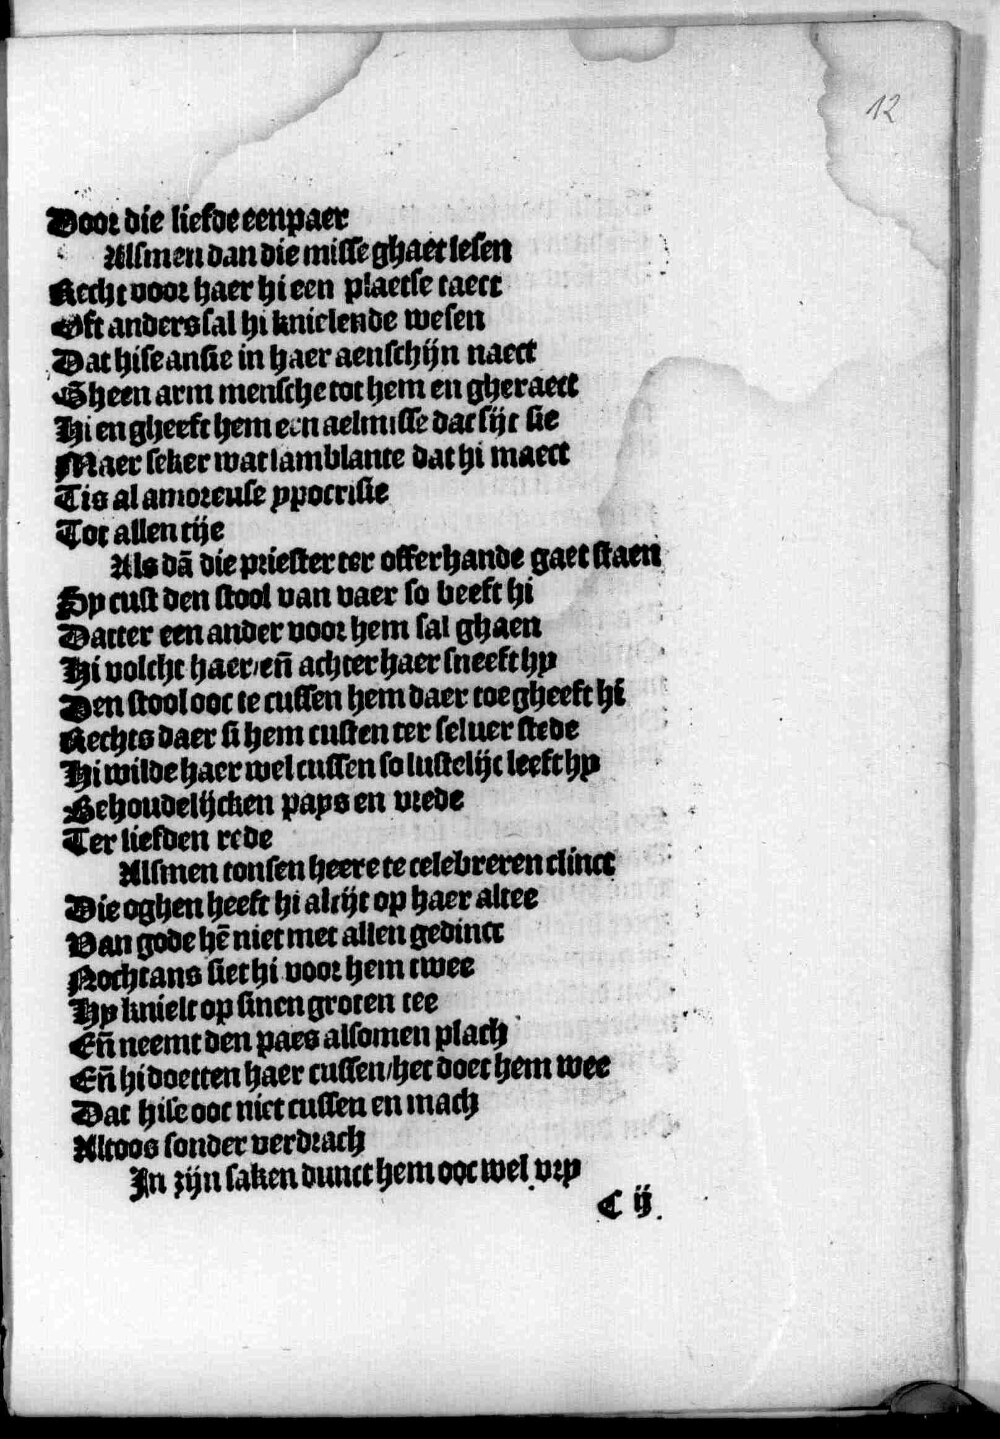 12
Door die liefde eenpaer
Alsmen dan die misse ghaet lesen
Recht voor haer hi een plaetse raect
Oft anders sal hi knielende wesen
Dat hise ansie in haer aenschijn naect
Gheen arm mensche tot hem en gheraect
Hi en gheeft hem een aelmisse dat sijt sie
Maer seker wat samblante dat hi maect
Tis al amoreuse ypocrisie
Tot allen tije
Als dā die priester ter offerhande gaet staen
Sy cust den stool van vaer so beeft hi
Datter een ander voor hem sal ghaen
Hi volcht haer/eñ achter haer sneeft hy
Den stool ooc te cussen hem daer toe gheeft hi
Rechts daer si hem custen ter seluer stede
Hi wilde haer wel cussen so lustelijc leeft hy
Behoudelijcken pays en vrede
Ter liefden rede
Alsmen tonsen heere te celebreren clinct
Die oghen heeft hi altijt op haer altee
Van gode hē niet met allen gedinct
Nochtans siet hi voor hem twee
Hy knielt op sinen groten tee
Eñ neemt den paes alsomen plach
Eñ hi doetten haer cussen/het doet hem wee
Dat hise ooc niet cussen en mach
Altoos sonder verdrach
In zijn saken dunct hem ooc wel vry
C ij.